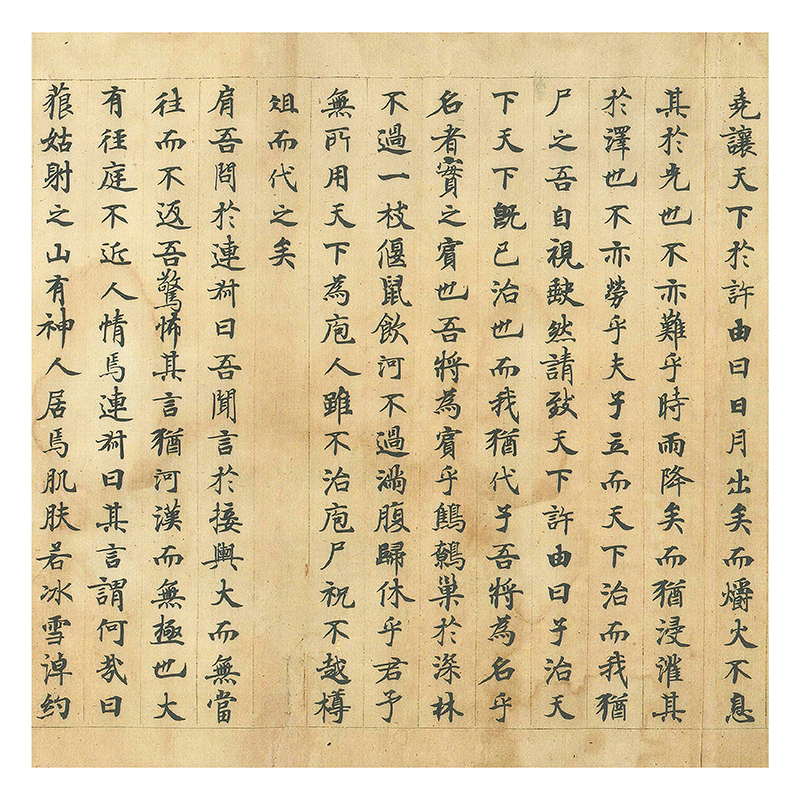 堯讓天下於許由曰日月出矣而爝火不息
其於光也不亦難乎時雨降矣而猶浸灌其
於澤也不亦勞乎夫子立而天下治而我猶
尸之吾自視缺然請致天下許由曰子治天
下天下旣已治也而我猶代子吾將為名乎
名者實之賓也吾將為賓乎鷦鷯巢於深林
不過一枝偃鼠飲河不過滿腹歸休乎君予
無所用天下為庖人雖不治庖尸祝不越樽
俎而代之矣
肩吾問於連叔曰吾聞言於接輿大而無當
往而不返吾驚怖其言猶河漢而無極也大
有徑庭不近人情焉連叔曰其言謂何哉曰
藐姑射之山有神人居焉肌膚若冰雪淖約